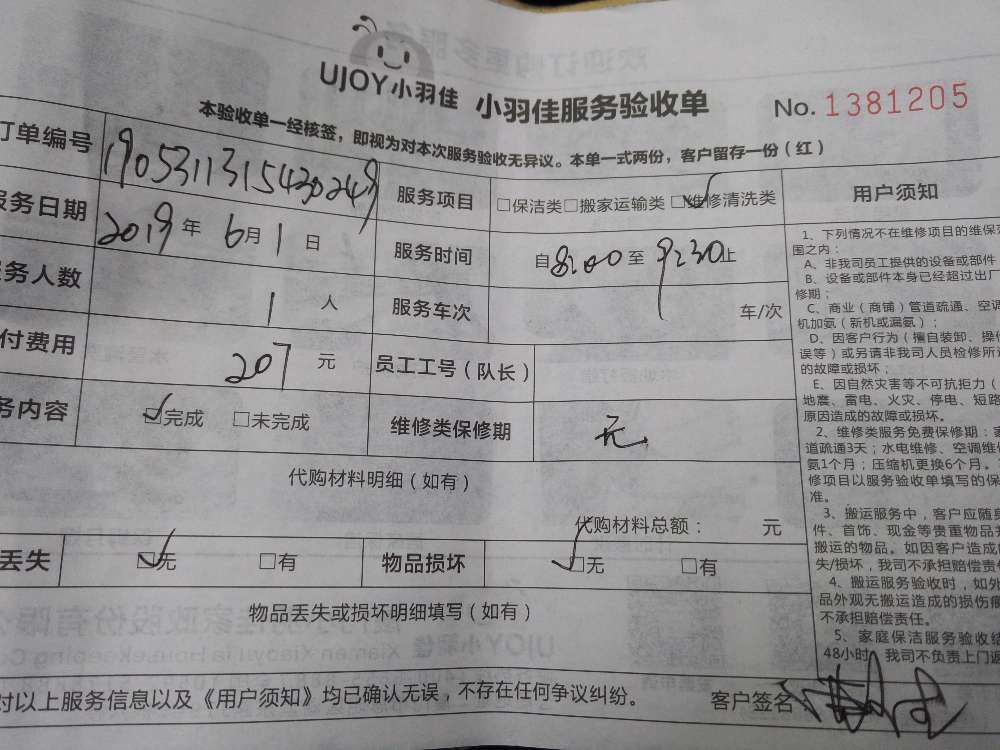 UJOY小羽佳 小羽佳服务验收单 No.1381205
本验收单一经核签，即视为对本次服务验收无异议。本单一式两份，客户留存一份（红）
订单编号 190531131543024 服务项目 □保洁类□搬家运输类☑维修清洗类
务日期 2019年6月1日 服务时间 自8:00至9:30止
务人数 1人 服务车次 车/次
付费用 207元 员工工号（队长）
务内容 ☑完成 □未完成 维修类保修期 无
代购材料明细（如有）
代购材料总额： 元
丢失 ☑无 □有 物品损坏 ☑无 □有
物品丢失或损坏明细填写（如有）
对以上服务信息以及《用户须知》均已确认无误，不存在任何争议纠纷。 客户签名
用户须知
1、下列情况不在维修项目的维保范
围之内：
A、非我司员工提供的设备或部件
B、设备或部件本身已经超过出厂
修期；
C、商业（商铺）管道疏通、空调
机加氨（新机或漏氨）；
D、因客户行为（擅自装卸、操作
误等）或另请非我司人员检修所
的故障或损坏；
E、因自然灾害等不可抗拒力（
地震、雷电、火灾、停电、短路
原因造成的故障或损坏。
2、维修类服务免费保修期：家
道疏通3天；水电维修、空调维
氨1个月；压缩机更换6个月。
修项目以服务验收单填写的保
准。
3、搬运服务中，客户应随身
件、首饰、现金等贵重物品
搬运的物品。如因客户造成
失/损坏，我司不承担赔偿责
4、搬运服务验收时，如外
品外观无搬运造成的损伤痕
不承担赔偿责任。
5、家庭保洁服务验收结
48小时，我司不负责上门返